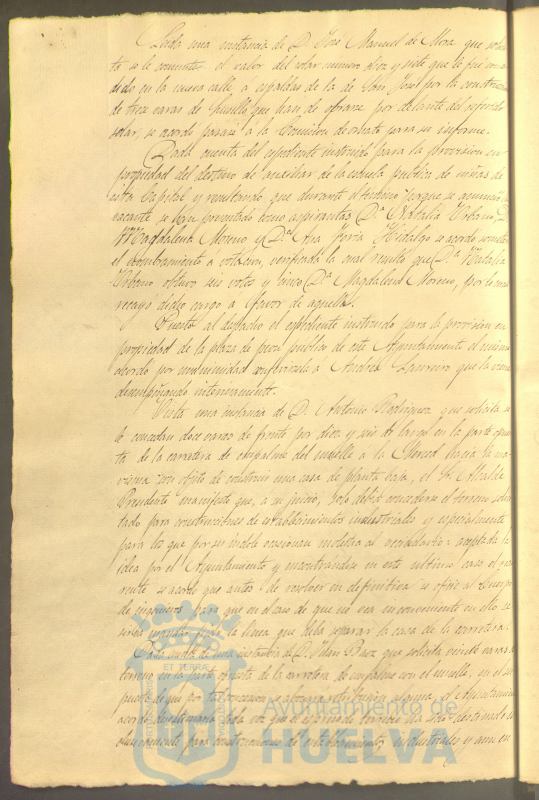 Leida una instancia de D. José Manuel de Mora que solici
ta se le conmute el valor del solar número diez y siete que le fué conce
dido en la nueva calle á espaldas de la de San José por la construccion
de trece varas de que han de obrarse por delante del referido
solar, se acordó pasase á la Comision de ornato para su informe.
Dada cuenta del espediente instruido para la provision en
propiedad del destino de ausiliar de la escuela pública de niñas de
esta Capital y resultando que durante el término porque se anunció la
vacante se han presentado como aspirantas Dª Natalia Urbano Dª
Magdalena Moreno y Dª Ana Hidalgo se acordó someter
el nombramiento á votacion, verificada la cual resultó que Dª Natalia
Urbano obtuvo seis votos y cinco Dª Magdalena Moreno, por lo cual
recayó dicho cargo á favor de aquella.
Puesto al despacho el espediente instruido para la provision en
propiedad de la plaza de peon público de este Ayuntamiento el mismo
acordó por unanimidad conferirsela á Andrés Laureiro que la viene
desempeñando interinamente.
Vista una instancia de D. Antonio Rodriguez que solicita se
le concedan doce varas de frente por diez y seis de largo en la parte opues
ta de la carretera de empalme del muelle á la Merced hacia la ma
risma con objeto de construir una casa de planta baja, el Sr. Alcalde
Presidente manifestó que, á su juicio, solo debia concederse el terreno solici
tado para construcciones de establecimientos industriales y especialmente
para los que por su índole ocasionan molestias al vecindario: aceptada la
idea por el Ayuntamiento y encontrándose en este último caso el
se acordó que antes de resolver en definitiva se oficie al Cuerpo
de ingenieros para que en el caso de que no vea inconveniente en ello se
sirva mandar fijar la línea que deba separar la casa de la carretera.
Dada cuenta de una instancia de D. Juan Baez que solicita varas
terreno en la parte opuesta de la carretera de empalme con el muelle, en el su
puesto de que por tal concesion se abonara retribucion alguna, el Ayuntamiento
acordó desestimarla toda vez que el espresado terreno ha sido destinado es
clusivamente para construcciones de establecimientos industriales y aun en
ET TERRÆ
Ayuntamiento de
HUELVA